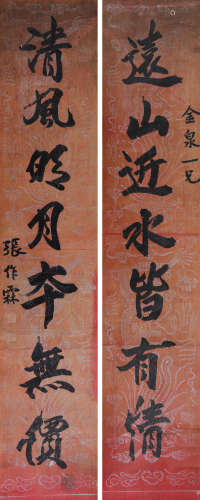 金泉一兄
遠山近水皆有情
清風明月夲無價
張作霖